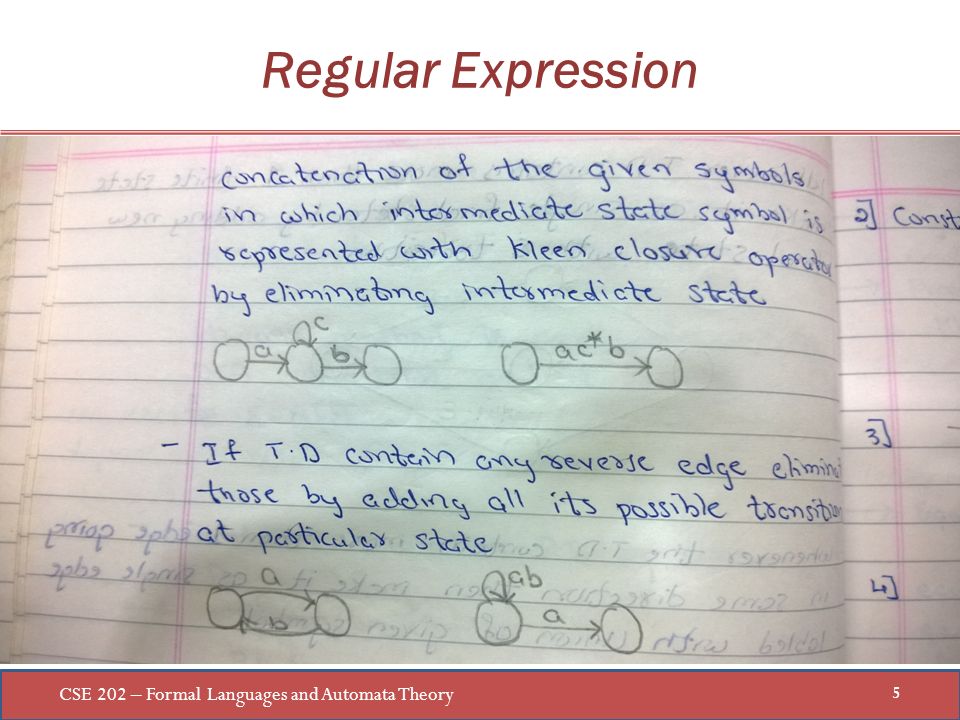 Regular Expression
concatenation of the given symbols
in which intermediate state symbol is
represented with kleen closure operator
by eliminating intermediate state
2] Const
a c b
ac*b
- If T.D contain any reverse edge elimina
those by adding all its possible transition
at particular state
3]
a
b
ab
a
4]
CSE 202 – Formal Languages and Automata Theory
5